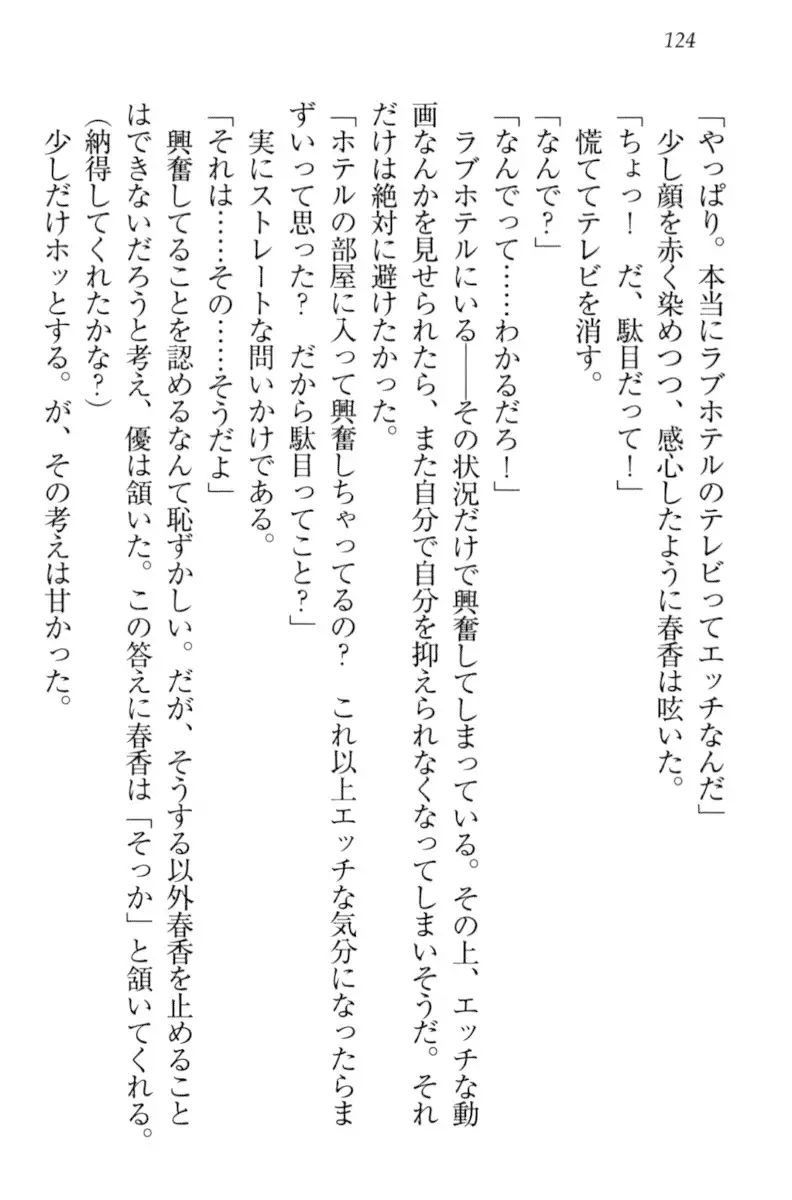 124
「やっぱり。本当にラブホテルのテレビってエッチなんだ」
少し顔を赤く染めつつ、感心したように春香は呟いた。
「ちょっ！　だ、駄目だって！」
慌ててテレビを消す。
「なんで？」
「なんでって……わかるだろ！」
ラブホテルにいる――その状況だけで興奮してしまっている。その上、エッチな動
画なんかを見せられたら、また自分で自分を抑えられなくなってしまいそうだ。それ
だけは絶対に避けたかった。
「ホテルの部屋に入って興奮しちゃってるの？　これ以上エッチな気分になったらま
ずいって思った？　だから駄目ってこと？」
実にストレートな問いかけである。
「それは……その……そうだよ」
興奮してることを認めるなんて恥ずかしい。だが、そうする以外春香を止めること
はできないだろうと考え、優は頷いた。この答えに春香は「そっか」と頷いてくれる。
（納得してくれたかな？）
少しだけホッとする。が、その考えは甘かった。